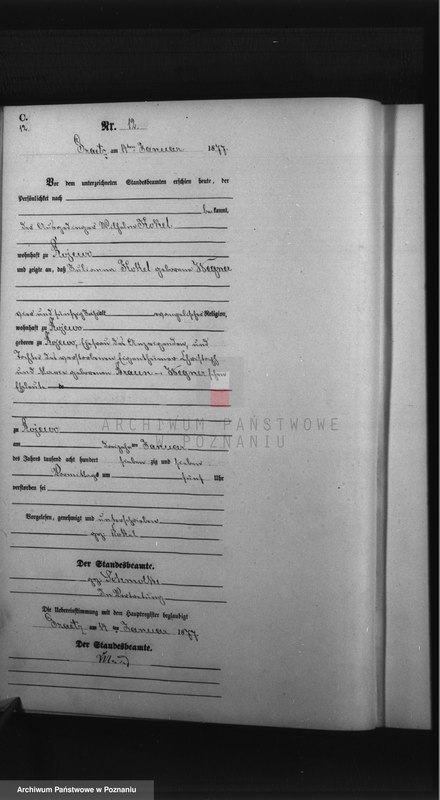 C.
12.
Nr. 12.
am 14ten Januar 1877.
Vor dem unterzeichneten Standesbeamten erschien heute, der
Persönlichkeit nach
kannt,
der Wilhelm Kokel
wohnhaft zu Rojewo
und zeigte an, daß Julianna Kokel geborene Wegner
vier und fünfzig Jahre alt evangelischer Religion,
wohnhaft zu Rojewo
geboren zu Rojewo, Ehefrau des und
Tochter des verstorbenen Eigenthümer
und geborenen Braun Wegner schen
Eheleute
zu Rojewo
am Januar
des Jahres tausend acht hundert sieben zig und sieben
Vormittags um fünf Uhr
verstorben sei
Vorgelesen, genehmigt und unterschrieben
gez. Kokel
Der Standesbeamte.
gez.
In Vertretung
Die Uebereinstimmung mit dem Hauptregister beglaubigt
am 14 ten Januar 1877
Der Standesbeamte.
ARCHIWUM PAŃSTWOWE
W POZNANIU
Archiwum Państwowe w Poznaniu